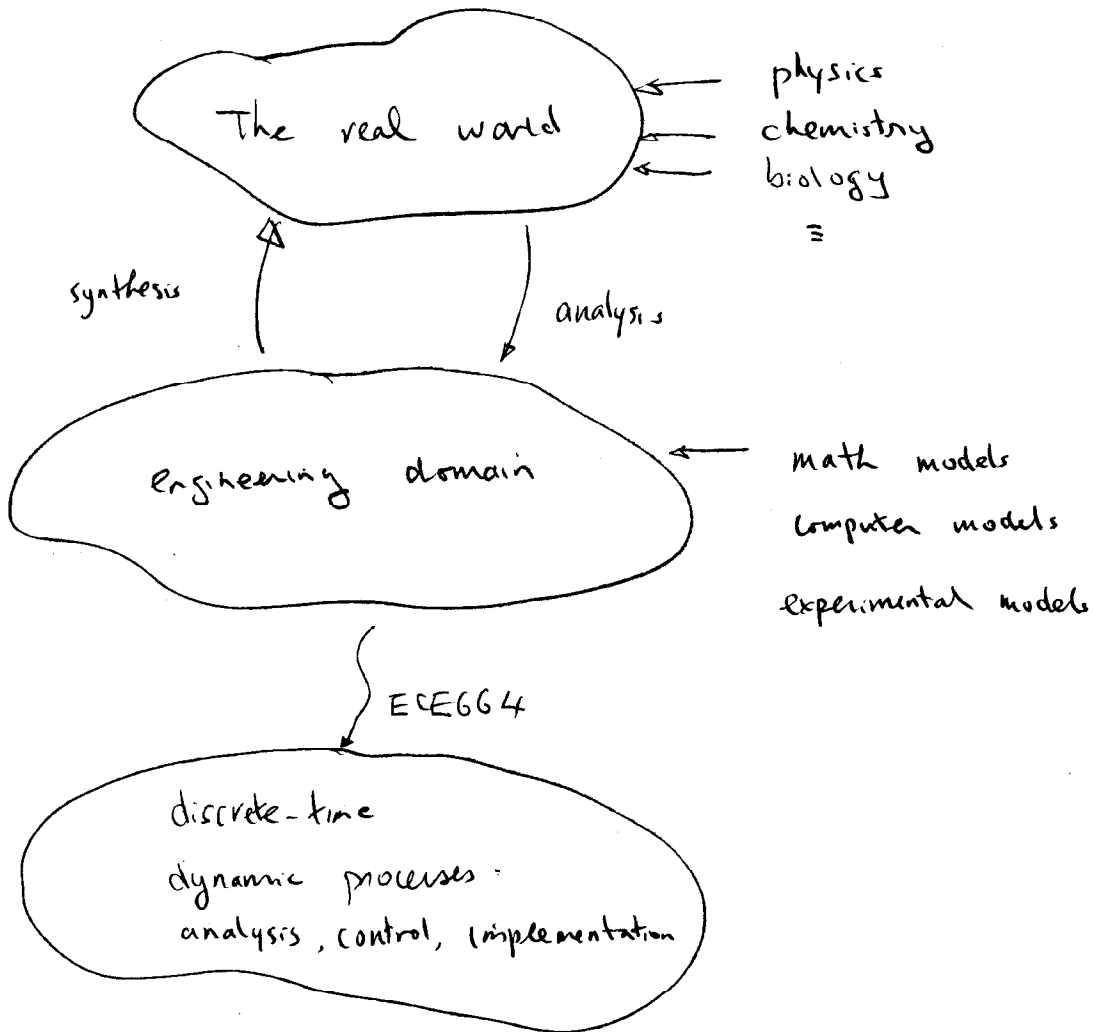 The real world
physics
chemistry
biology
synthesis
analysis
engineering domain
math models
computer models
experimental models
ECE664
discrete-time
dynamic processes:
analysis, control, implementation